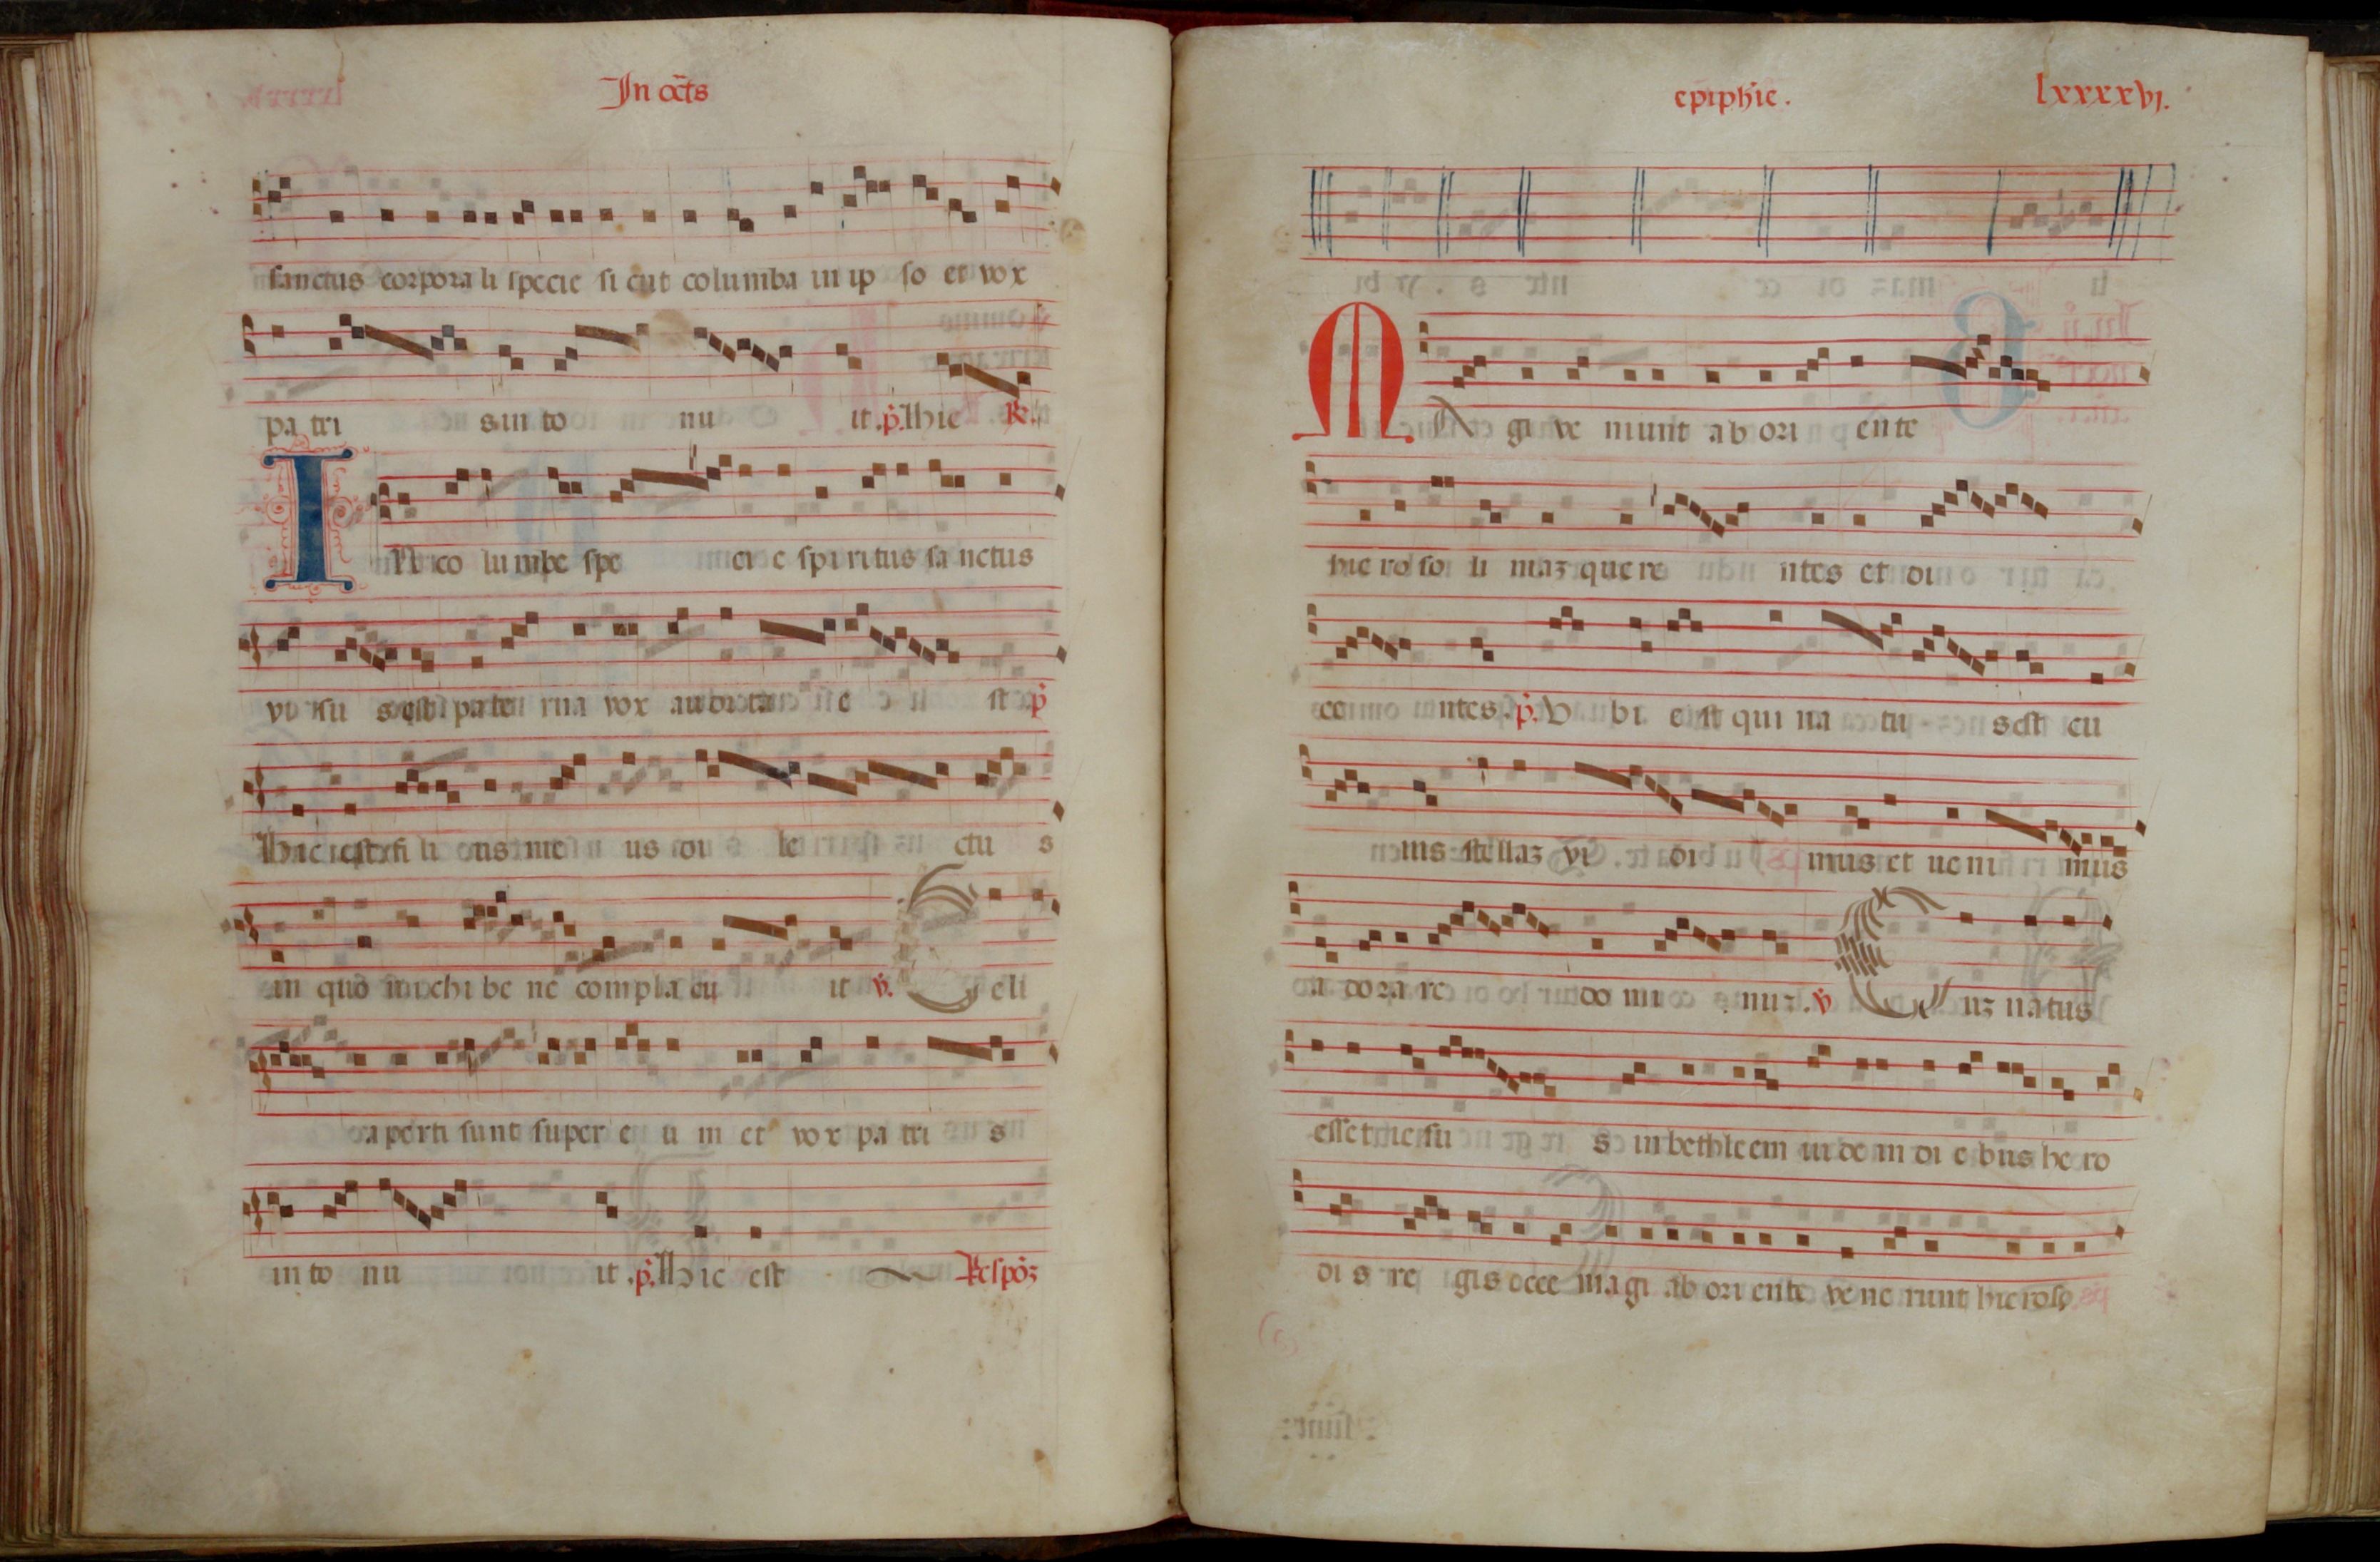 In oct̄s
sanctus corpora li specie si cut columba in ip so et vox
pa tri s in to nu it . p̄. hic R.
In co lumbe spe ci e spiritus sa nctus
vi su s est pa te rna vox au di ta e st p̄
hic est fi li us me us di le ctu s
in quo michi be ne compla cu it v̄. Celi
aperti sunt super e u m et vox pa tri s
in to nu it . p̄. hic est Respōꝫ
epiphīe. lxxxxvj.
MAgi ve niunt ab ori ente
hie ro so li maꝫ que re ntes et di
ce ntes . p̄. V bi e st qui na tu s est cu
ius stellaꝫ vi di mus et ue ni mus
a do ra re do mi nuꝫ . v̄ Cuꝫ natus
esset ie su s in bethleem iude in di e bus he ro
di s re gis ecce magi ab ori ente ve ne runt hieroso